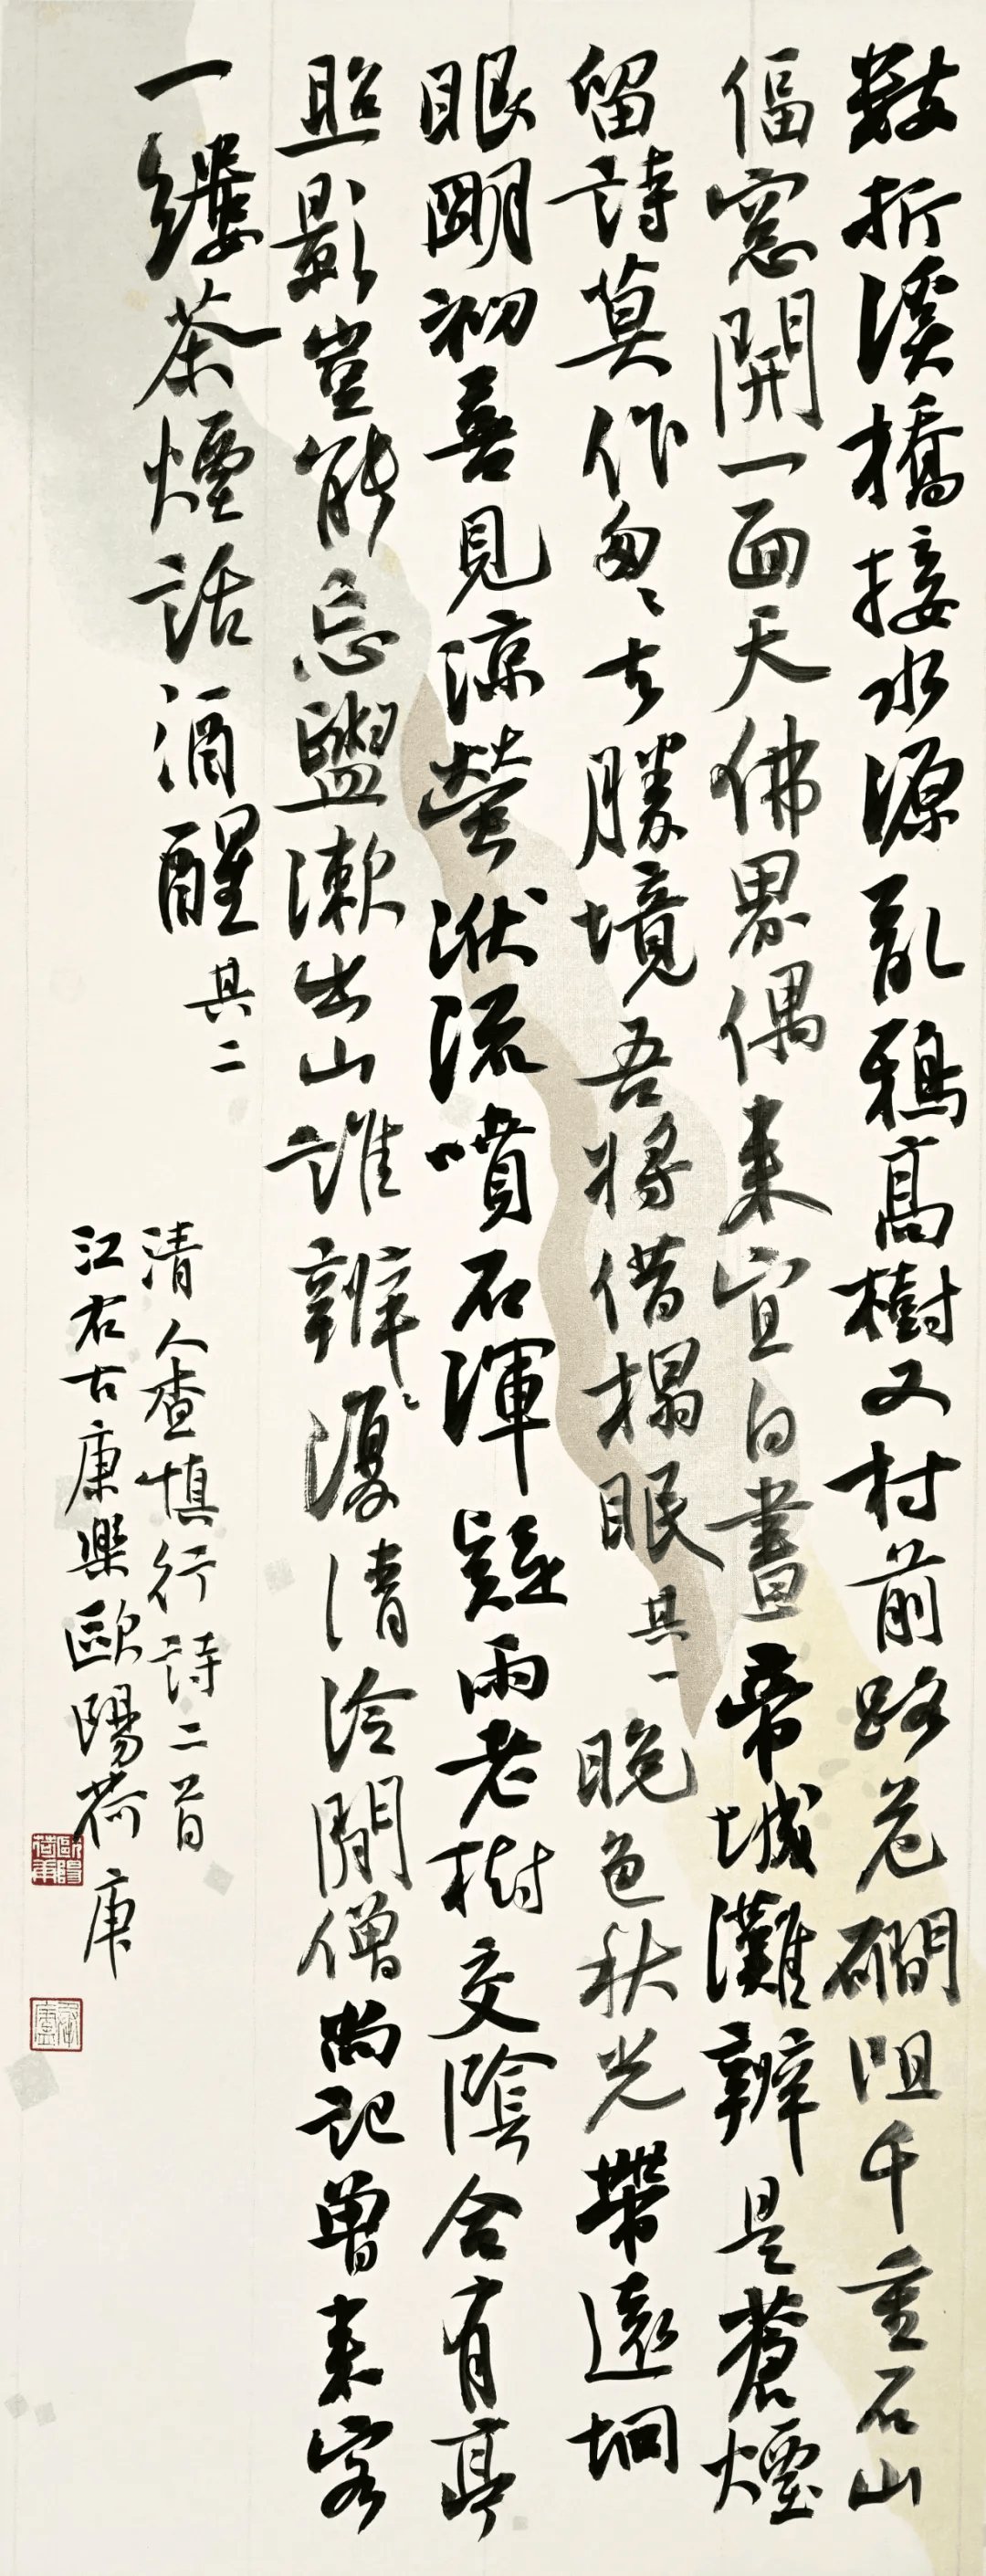 數折溪橋接水源亂鴉高樹又村前路危磵阻千重石山
偪窓開一面天佛界偶来宜白晝帝城灘辨是蒼煙
留詩莫作匆〻去勝境吾將借榻眠其一晚色秋光帶遠坰
眼朙初喜見凉螢洑流噴石渾疑雨老樹交陰合有亭
照影豈能忘盥漱出山誰辨〻濅清泠閒僧尚記曾来客
一縷茶煙話酒醒其二
清人查慎行詩二首
江右古康樂歐陽荷庚
歐陽荷庚